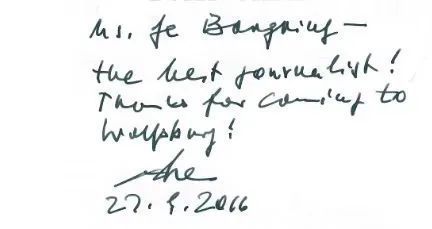 Ms. Ge Bangning —
the best journalist!
Thanks for coming to
Wolfsburg!
27.9.2016